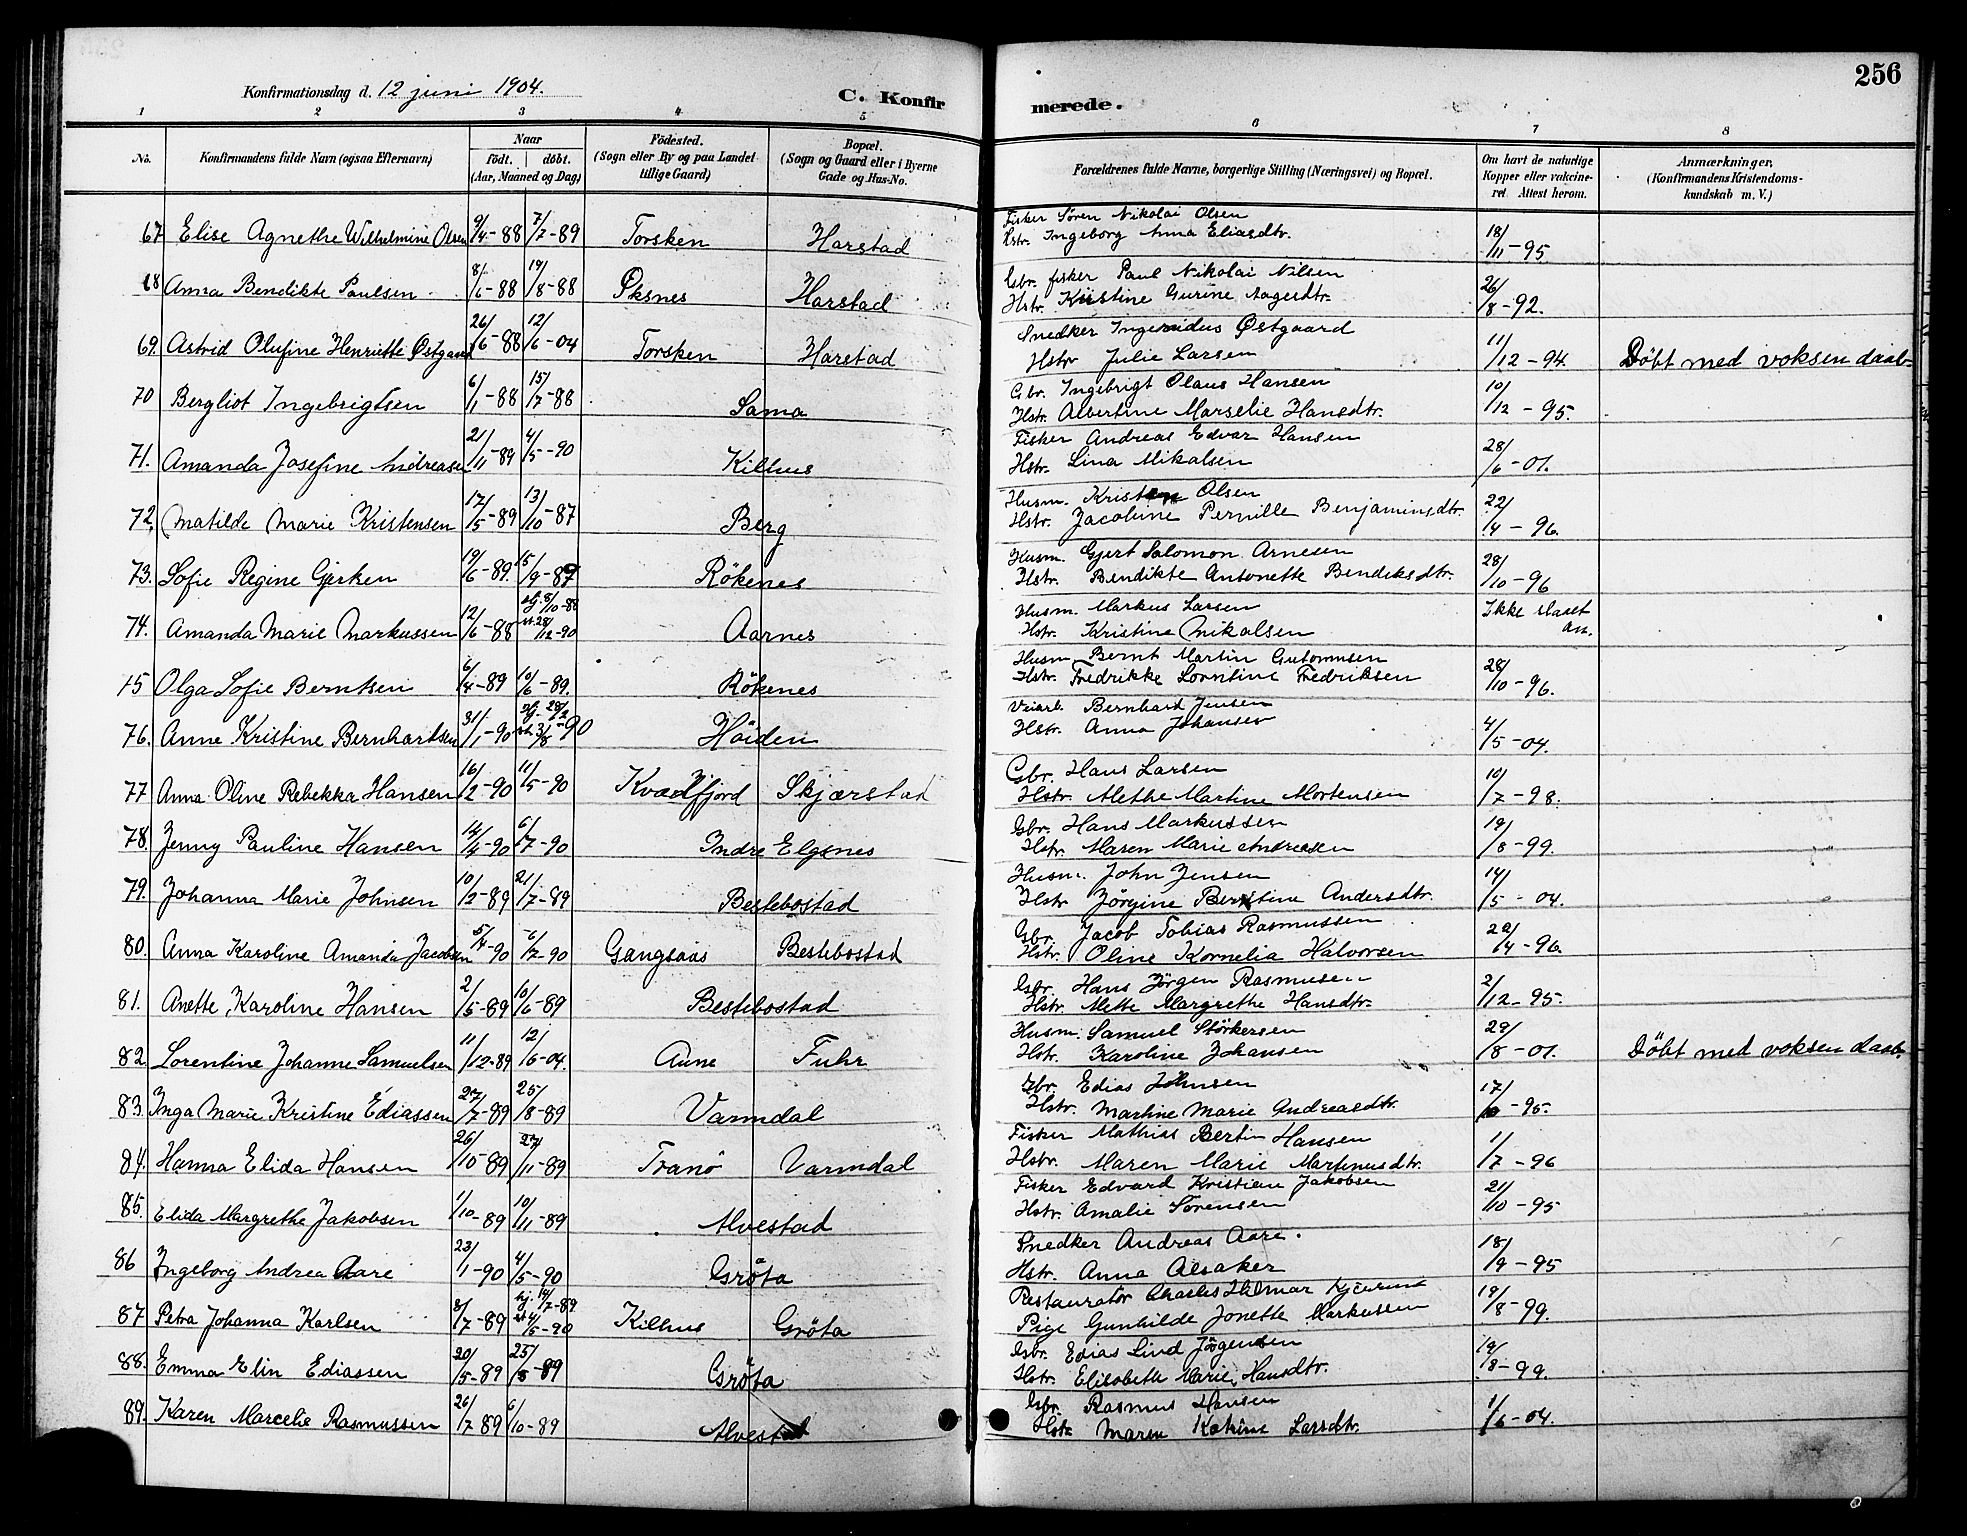 256
Konfirmationsdag d. 12 juni 1904.
C. Konfirmerede.
1 2 3 4 5 6 7 8
No. Konfirmandens fulde Navn (ogsaa Efternavn) Naar födt. döbt. (Aar, Maaned og Dag) Födested. (Sogn eller By og paa Landet tillige Gaard) Bopæl. (Sogn og Gaard eller i Byerne Gade og Hus-No. Forældrenes fulde Navne, borgerlige Stilling (Næringsvei) og Bopæl. Om havt de naturlige Kopper eller vakcineret. Attest herom. Anmærkninger, (Konfirmandens Kristendomskundskab m. V.)
67 Elise Agnethe Wilhelmine Olsen 9/4-88 7/7-89 Torsken Harstad Fisker Sören Nikolai Olsen
Hstr. Ingeborg Anna Eliasdtr. 18/11-95
68 Anna Bendikte Paulsen 8/6-88 19/8-88 Öksnes Harstad Gbr. fisker Paul Nikolai Nilsen
Hstr. Kristine Gurine Aagesdtr. 26/8-92.
69. Astrid Olufine Henriette Østgaard 26/6-88 12/6-04 Torsken Harstad Snedker Østgaard
Hstr Julie Larsen 11/12-94. Döbt med voksen daab.
70 Bergliot Ingebrigtsen 6/1-88 15/7-88 Sama Gbr. Ingebrigt Olaus Hansen
Hstr. Albertine Marselie Hansdtr. 10/12-95.
71. Amanda Josefine Andreasen 21/11-89 4/5-90 Kilhus Fisker Andreas Edvar Hansen
Hstr. Lina Mikalsen 28/6-01.
72. Matilde Marie Kristensen 17/5-89 13/10-87 Berg Husm. Kristen Olsen
Hstr. Jacobine Pernille Benjaminsdtr. 22/4-96.
73. Sofie Regine Gjerken 19/6-89. 15/9-89 Rökenes Husm. Gjert Salomon Arnesen
Hstr. Bendikte Antonette Bendiksdtr. 28/10-96
74. Amanda Marie Markussen 12/6-88 hj. 8/10-88 st. 28/12-90 Aarnes Husm. Markus Larsen
Hstr. Kristine Mikalsen Ikke slaaet an.
75 Olga Sofie Berntsen 6/4-89 10/6-89. Rökenes Husm Bernt Martin Gutormsen
Hstr. Fredrikke Lorntine Fredriksen 28/10-96.
76. Anne Kristine Bernhartsen 31/1-90 hj. 28/2 st. 31/8-90 Höiden Veiarb. Bernhard Jensen
Hstr. Anna Johansen 4/5-04.
77 Anna Oline Rebekka Hansen 16/2-90 11/5-90 Kvædfjord Skjærstad Gbr. Hans Larsen
Hstr. Methe Martine Mortensen 10/7-98.
78. Jenny Pauline Hansen 14/4-90 6/7-90 Indre Elgsnes Gbr. Hans Markussen
Hstr. Maren Marie Andreasen 19/8-99.
79. Johanna Marie Johnsen 10/2-89 21/7-89 Bestebostad Husm. John Jensen
Hstr Jörgine Berntine Andersdtr. 14/5-04.
80. Anna Karoline Amanda Jacobsen 5/4-90 6/7-90 Gangsaas Bestebostad Gbr. Jacob Tobias Rasmussen
Hstr. Oline Kornelia Halvorsen 22/4-96.
81. Anette Karoline Hansen 2/5-89 10/6-89 Bestebostad Gbr. Hans Jörgen Rasmussen
Hstr. Mette Margrethe Hansdtr. 2/12-95.
82. Lorentine Johanne Samuelsen 11/12-89 12/6-04. Aune Fuhr Husm. Samuel Störkersen
Hstr. Karoline Johansen 29/8-01. Döbt med voksen daab.
83. Inga Marie Kristine Ediassen 27/7-89 25/8-89 Varmdal Gbr. Edias Johnsen
Hstr. Martine Marie Andreasdtr. 17/6-95.
84. Hanna Elida Hansen 26/10-89 27/11-89 Tranö Varmdal Fisker Mathias Bertin Hansen
Hstr. Maren Marie Martinusdtr. 1/7-96
85. Elida Margrethe Jakobsen 1/10-89 10/11-89 Alvestad Fisker Edvard Kristian Jakobsen
Hstr. Amalie Sörensen 21/10-95
86 Ingeborg Andrea Aare 23/1-90 4/5-90 Gröta Snedker Andreas Aare.
Hstr. Anna Alsaker 18/9-95
87 Petra Johanna Karlsen 8/7-89 hj. 14/7-89 st. 4/5-90 Kilhus Gröta Restauratör Charles Hilmar
Pige Gunhilde Jonette Markussen 19/8-99.
88. Emma Elin Ediassen 20/5-89 25/8-89 Gröta Gbr. Edias Lind Jörgensen
Hstr. Elisabeth Marie Hansdtr. 19/8-99.
89. Karen Marcelie Rasmussen 26/7-89 6/10-89 Alvestad Gbr. Rasmus Hansen
Hstr Maren Katrine Larsdtr. 1/6-04.